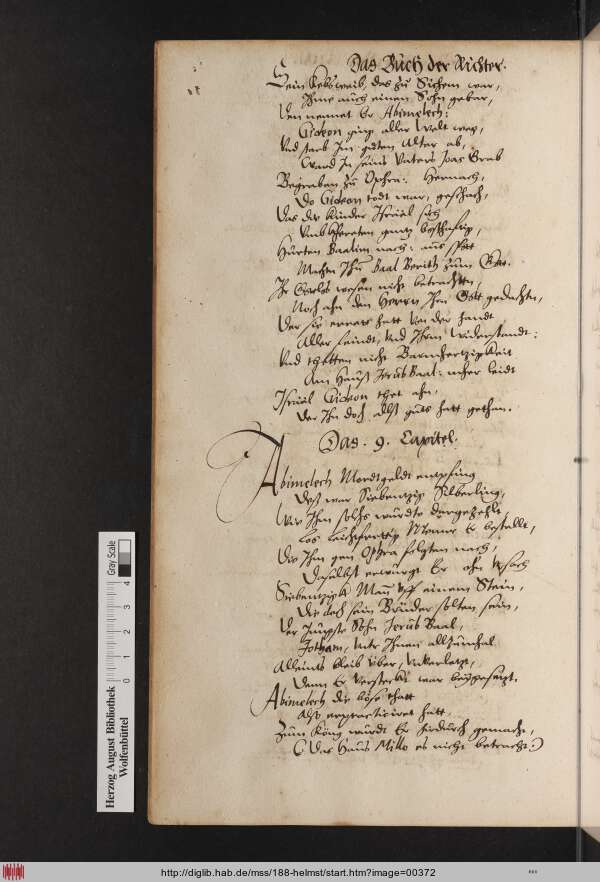 Das Buch der Richter.
Sein Kebsweib, das zu Sichem war,
Ihme auch einen Sohn gebar,
Den nennet Er Abimelech:
Gideon ging aller Welt weg,
Vnd starb Im guten Alter ab,
Ward In seins Vaters Joas Grab
Begraben zu Ophra: Hernach,
Do Gideon todt war, geschach,
Das die Kinder Israel sich
gantz
Hureten Baalim nach: aus
Machten Ihn Baal Berith zum Gott.
Ir wesen nicht betrachtten,
Noch ahn den Herrn Ihrn Gott gedachten,
Der sie errett hatt von der handt
Aller feindt, Vnd Ihrm widerstandt:
Vnd thetten nicht Barmhertzigkeit
Am Hauß Jerub Baal: leidt
Israel Gideon thet ahn,
Der Ihn doch alß guts hatt gethan.
Das . 9. Capitel.
Abimelech Mordtgeldt empfing
Deß war Siebentzig Silberling,
Wie Ihm solchs wurdte dargezehlt,
Los leichtfertig Menner Er bestellt,
Die Ihm gen Ophra folgten nach,
Doselbst erwurgt Er ohn Vrsach
Siebentzigk Man vff einem Stein,
Die doch sein Brüder solten sein,
Der Jüngste Sohn Jerub Baal,
Jotham, vntr Ihnen allzumhal
Alleints bleib vber, Vnverletzt,
Denn Er versteckt war beygesetzt.
Abimelech die böse thatt
Alß erpracticiret hatt
Zum König wurdt Er hirdurch gemacht,
(Das Haus Millo es nicht betracht:)
Herzog August Bibliothek
Wolfenbüttel
Gray Scale
0 1 2 3 4
http://diglib.hab.de/mss/188-helmst/start.htm?image=00372